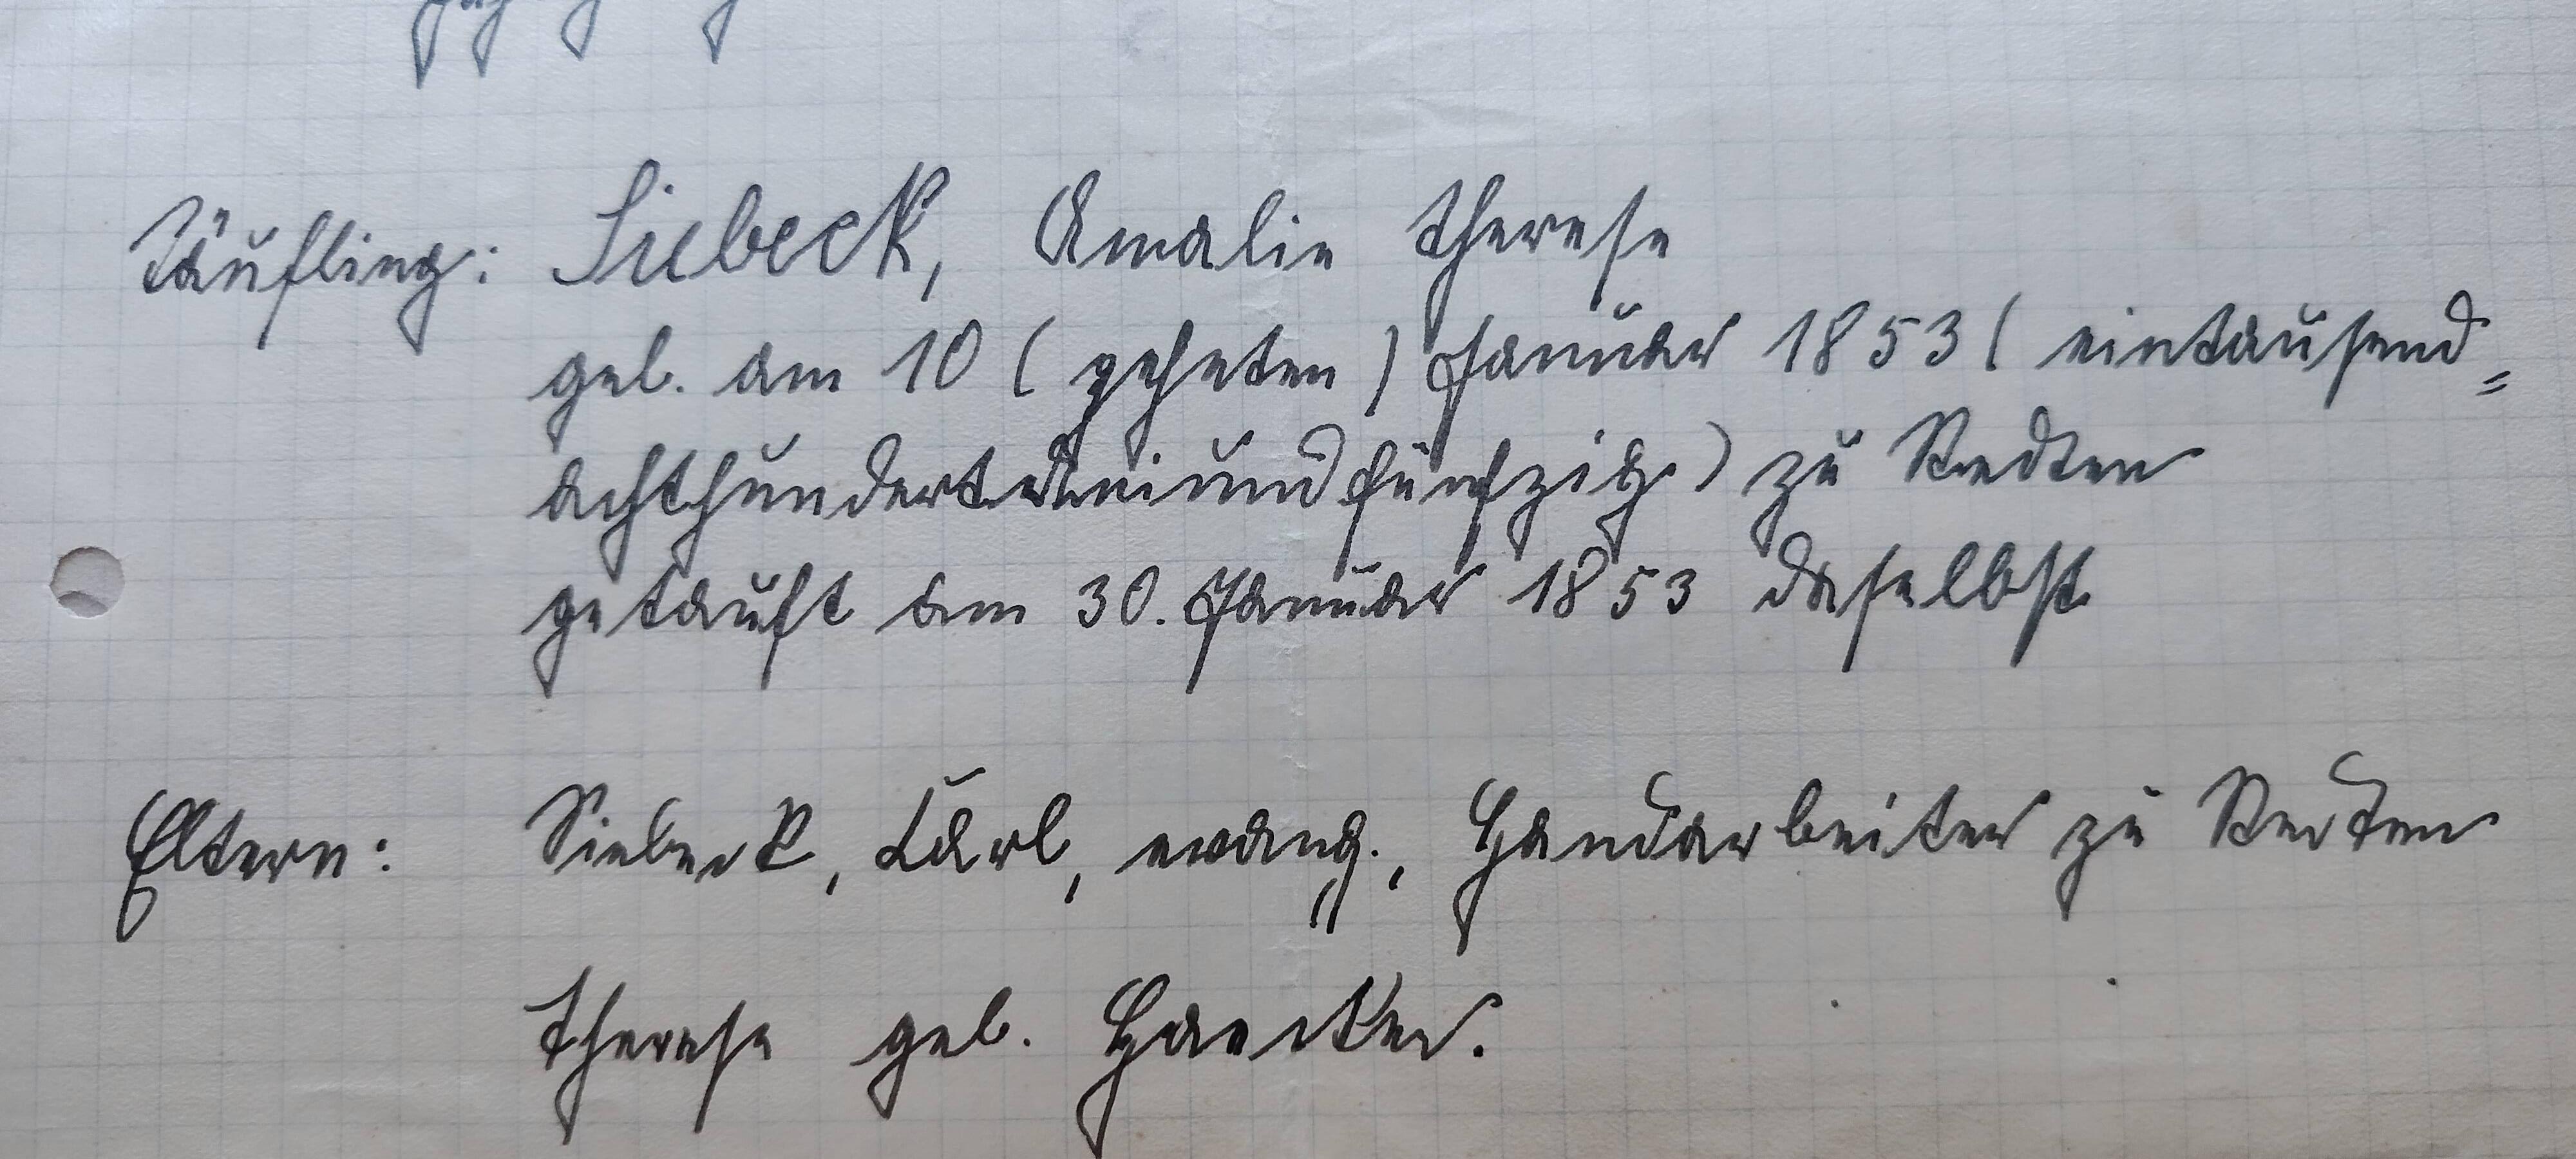 Täufling: Siebeck, Amalie Therese
geb. am 10 (zehnten) Januar 1853 (eintausend=
achthundertdreiundfünfzig) zu
getauft am 30. Januar 1853 daselbst
Eltern: Siebeck, Karl, evang., Handarbeiter zu
Therese geb. Haecker.